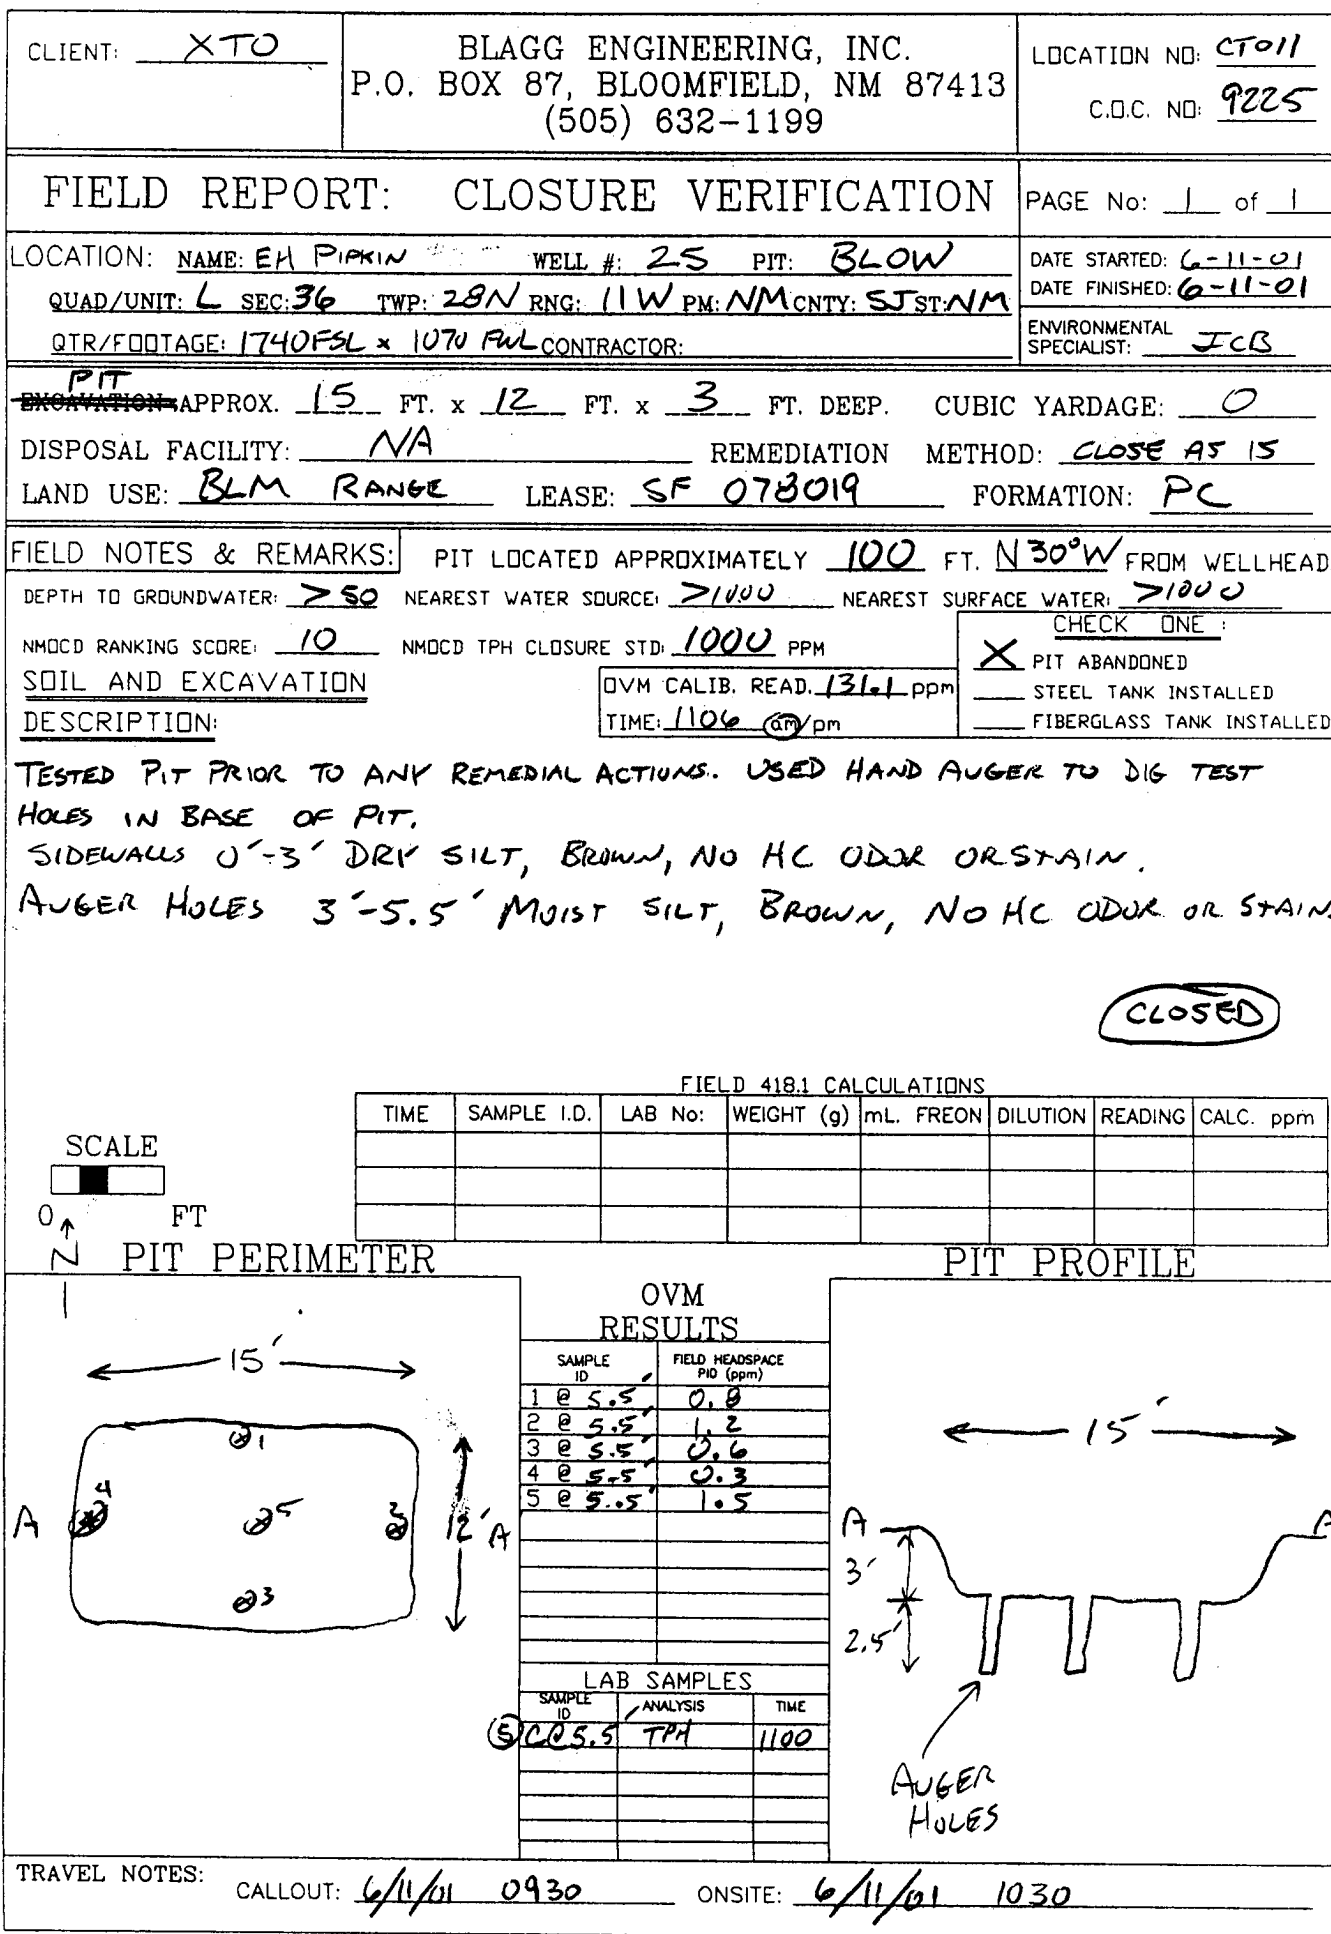 CLIENT: XTO
BLAGG ENGINEERING, INC.
P.O. BOX 87, BLOOMFIELD, NM 87413
(505) 632-1199
LOCATION NO: CT011
C.O.C. NO: 9225
FIELD REPORT: CLOSURE VERIFICATION
PAGE No: 1 of 1
LOCATION: NAME: EH PIPKIN WELL #: 25 PIT: BLOW
QUAD/UNIT: L SEC: 36 TWP: 28N RNG: 11W PM: NM CNTY: SJ ST: NM
QTR/FOOTAGE: 1740FSL x 1070 FWL CONTRACTOR:
DATE STARTED: 6-11-01
DATE FINISHED: 6-11-01
ENVIRONMENTAL
SPECIALIST: JCB
PIT
EXCAVATION APPROX. 15 FT. x 12 FT. x 3 FT. DEEP. CUBIC YARDAGE: 0
DISPOSAL FACILITY: NA REMEDIATION METHOD: CLOSE AS IS
LAND USE: BLM RANGE LEASE: SF 078019 FORMATION: PC
FIELD NOTES & REMARKS: PIT LOCATED APPROXIMATELY 100 FT. N30°W FROM WELLHEAD
DEPTH TO GROUNDWATER: >50 NEAREST WATER SOURCE: >1000 NEAREST SURFACE WATER: >1000
NMOCD RANKING SCORE: 10 NMOCD TPH CLOSURE STD: 1000 PPM
CHECK ONE :
X PIT ABANDONED
STEEL TANK INSTALLED
FIBERGLASS TANK INSTALLED
SOIL AND EXCAVATION
DESCRIPTION:
OVM CALIB. READ. 131.1 ppm
TIME: 1106 am/pm
TESTED PIT PRIOR TO ANY REMEDIAL ACTIONS. USED HAND AUGER TO DIG TEST
HOLES IN BASE OF PIT.
SIDEWALLS 0'-3' DRY SILT, BROWN, NO HC ODOR OR STAIN.
AUGER HOLES 3'-5.5' MOIST SILT, BROWN, NO HC ODOR OR STAIN.
CLOSED
FIELD 418.1 CALCULATIONS
TIME SAMPLE I.D. LAB No: WEIGHT (g) mL. FREON DILUTION READING CALC. ppm
SCALE
0 FT
N
PIT PERIMETER
15'
1
4
A
5
2
12'
A
3
OVM
RESULTS
SAMPLE ID FIELD HEADSPACE PID (ppm)
1 @ 5.5' 0.8
2 @ 5.5' 1.2
3 @ 5.5' 0.6
4 @ 5.5' 0.3
5 @ 5.5' 1.5
LAB SAMPLES
SAMPLE ID ANALYSIS TIME
5 C@5.5' TPH 1100
PIT PROFILE
15'
A
A
3'
2.5'
AUGER
HOLES
TRAVEL NOTES:
CALLOUT: 6/11/01 0930 ONSITE: 6/11/01 1030